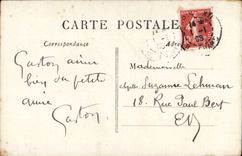 CARTE POSTALE
Correspondance
Gaston aime
bien sa petite
amie
Gaston.
Mademoiselle
Suzanne Lehman
18. Rue Paul Bert
EV